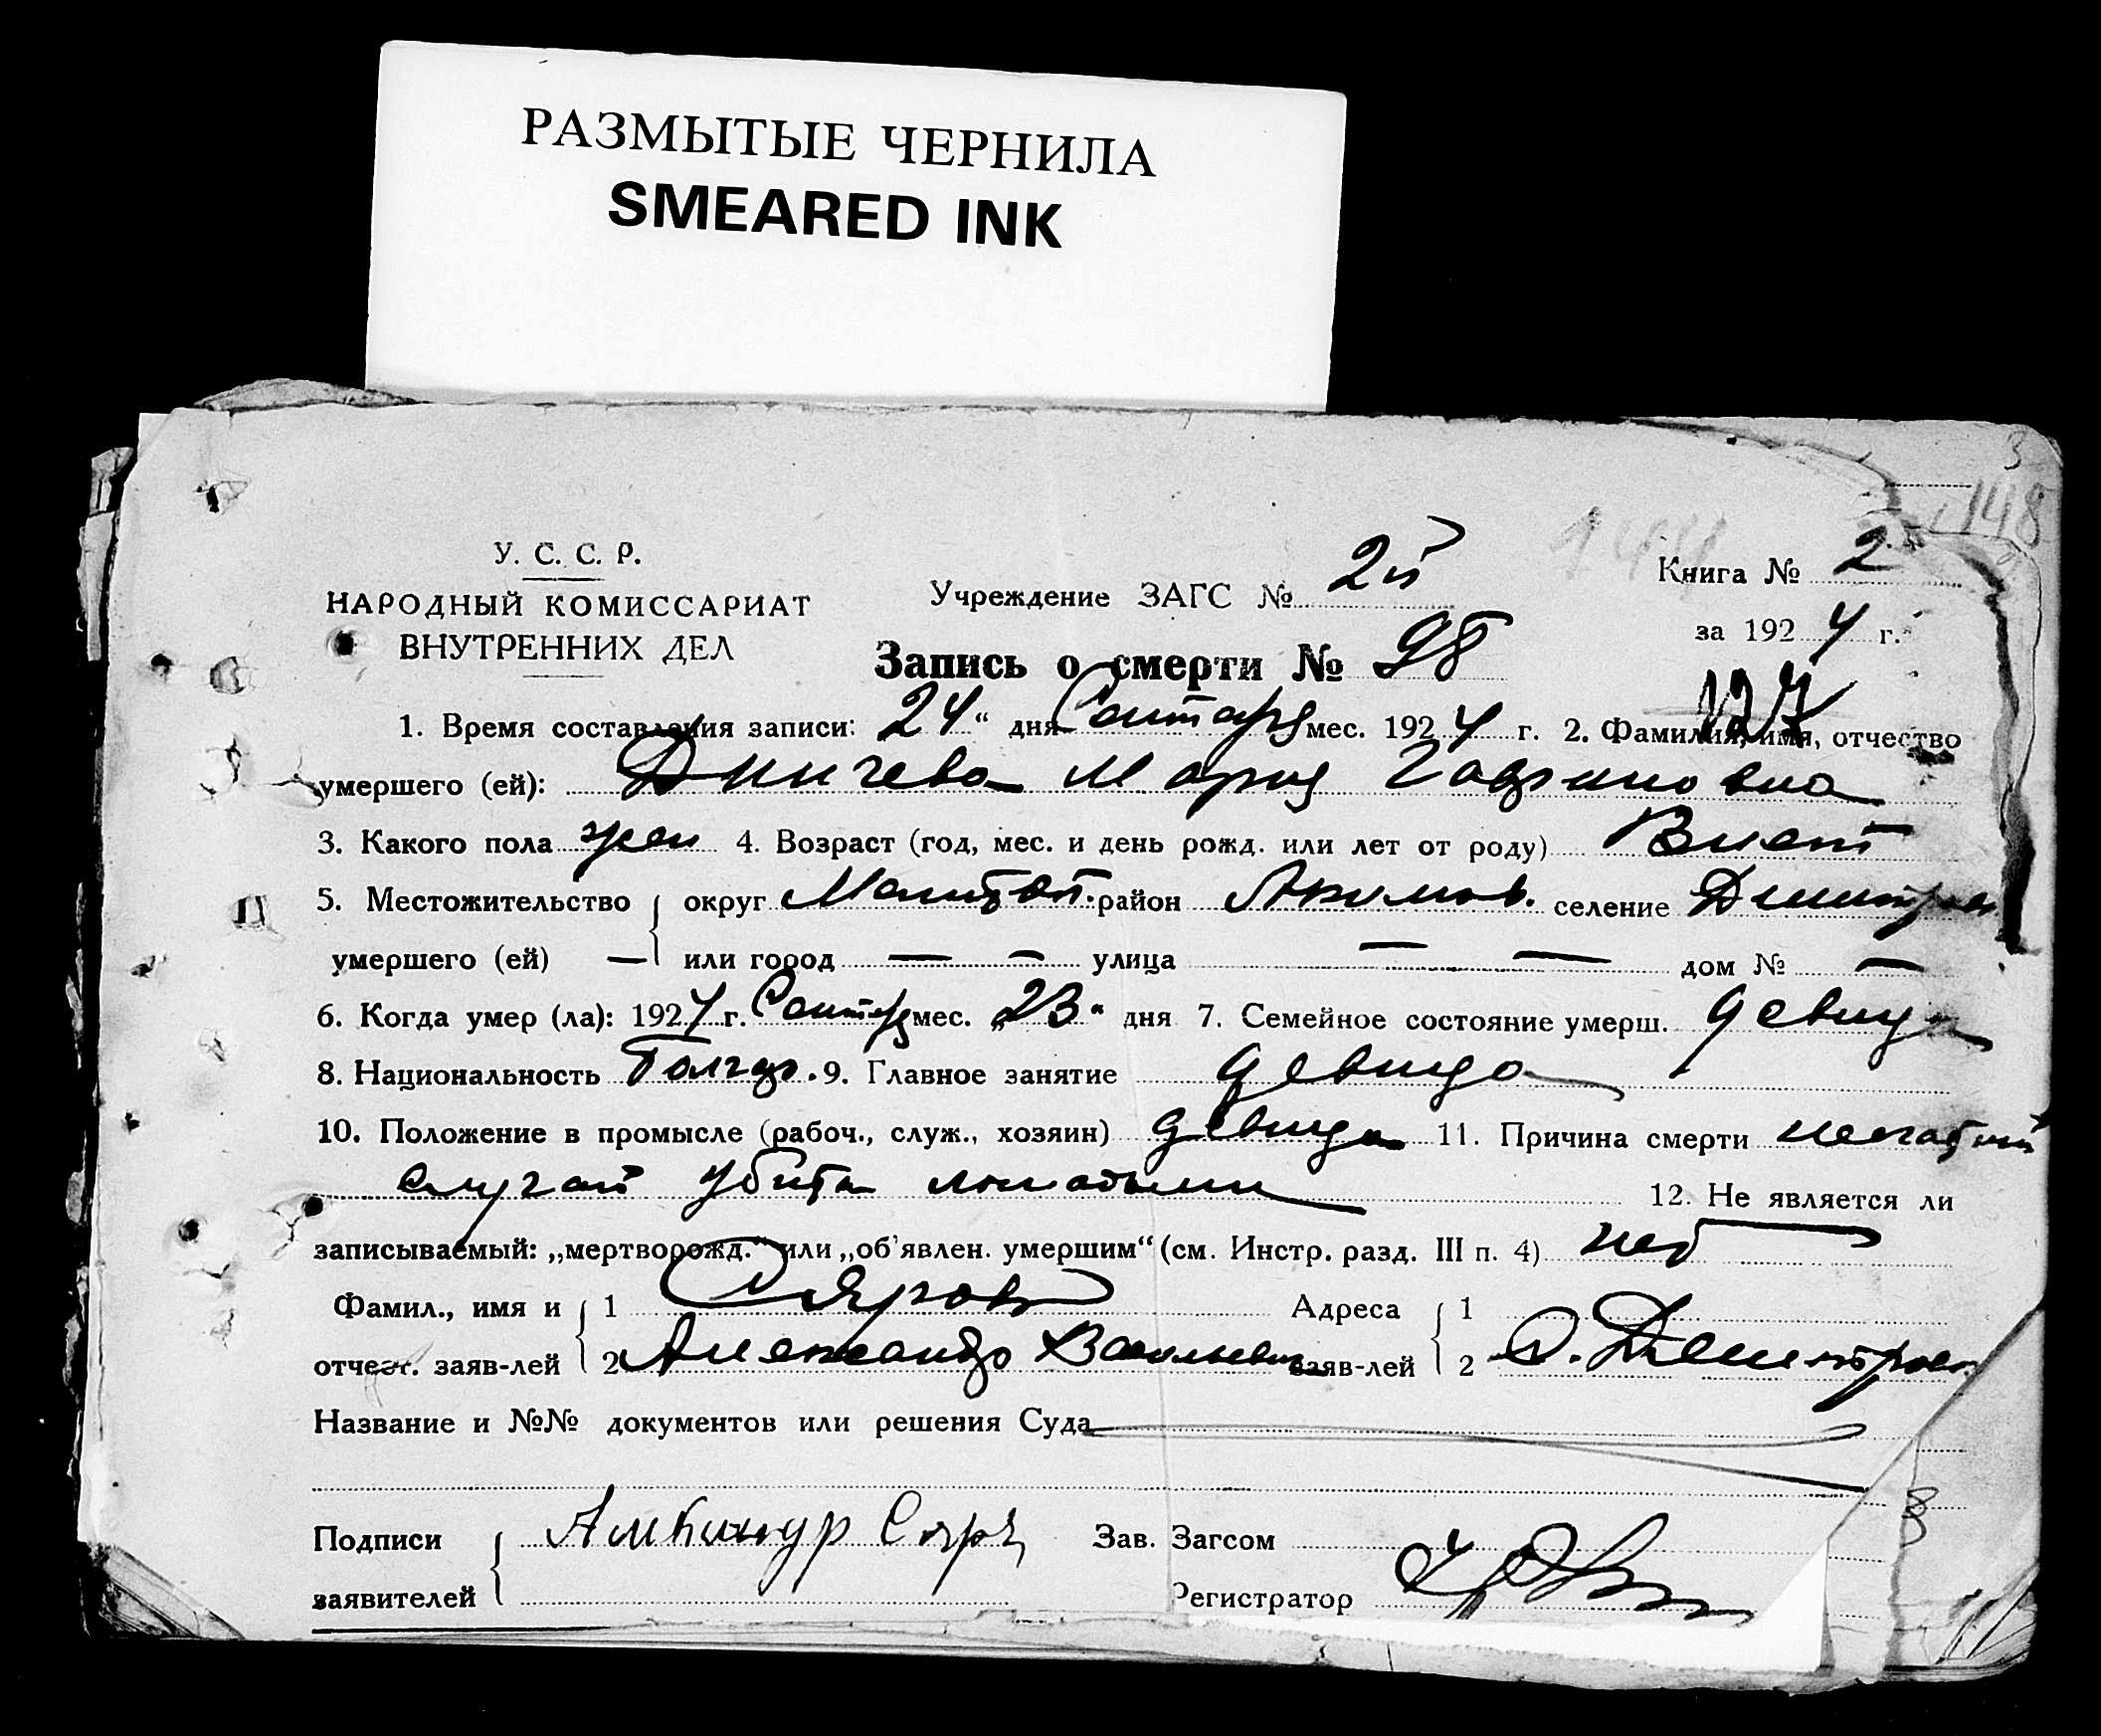 РАЗМЫТЫЕ ЧЕРНИЛА
SMEARED INK
3
148
144
У. С. С. Р.
НАРОДНЫЙ КОМИССАРИАТ
ВНУТРЕННИХ ДЕЛ
Учреждение ЗАГС № 2й
Книга № 2
за 1924 г.
Запись о смерти № 98
127
1. Время составления записи: 24 “ дня мес. 1924 г. 2. Фамилия, имя, отчество
умершего (ей): Диничева Мария
3. Какого пола жен 4. Возраст (год, мес. и день рожд. или лет от роду) 8 лет
5. Местожительство округ Мелитоп. район Акимов. селение Димитров
умершего (ей) — или город — — улица — — дом № —
6. Когда умер (ла): 1924 г. мес. „23“ дня 7. Семейное состояние умерш. девица
8. Национальность Болгар. 9. Главное занятие девица
10. Положение в промысле (рабоч., служ., хозяин) девица 11. Причина смерти несчастный
случай убита лошадьми 12. Не является ли
записываемый: „мертворожд.“ или „об'явлен. умершим“ (см. Инстр. разд. III п. 4) нет
Фамил., имя и 1 Сяров Адреса 1
отчест. заяв-лей 2 Александр Васильевич заяв-лей 2 с. Димитровк.
Название и №№ документов или решения Суда
8
Подписи Зав. Загсом
заявителей Регистратор